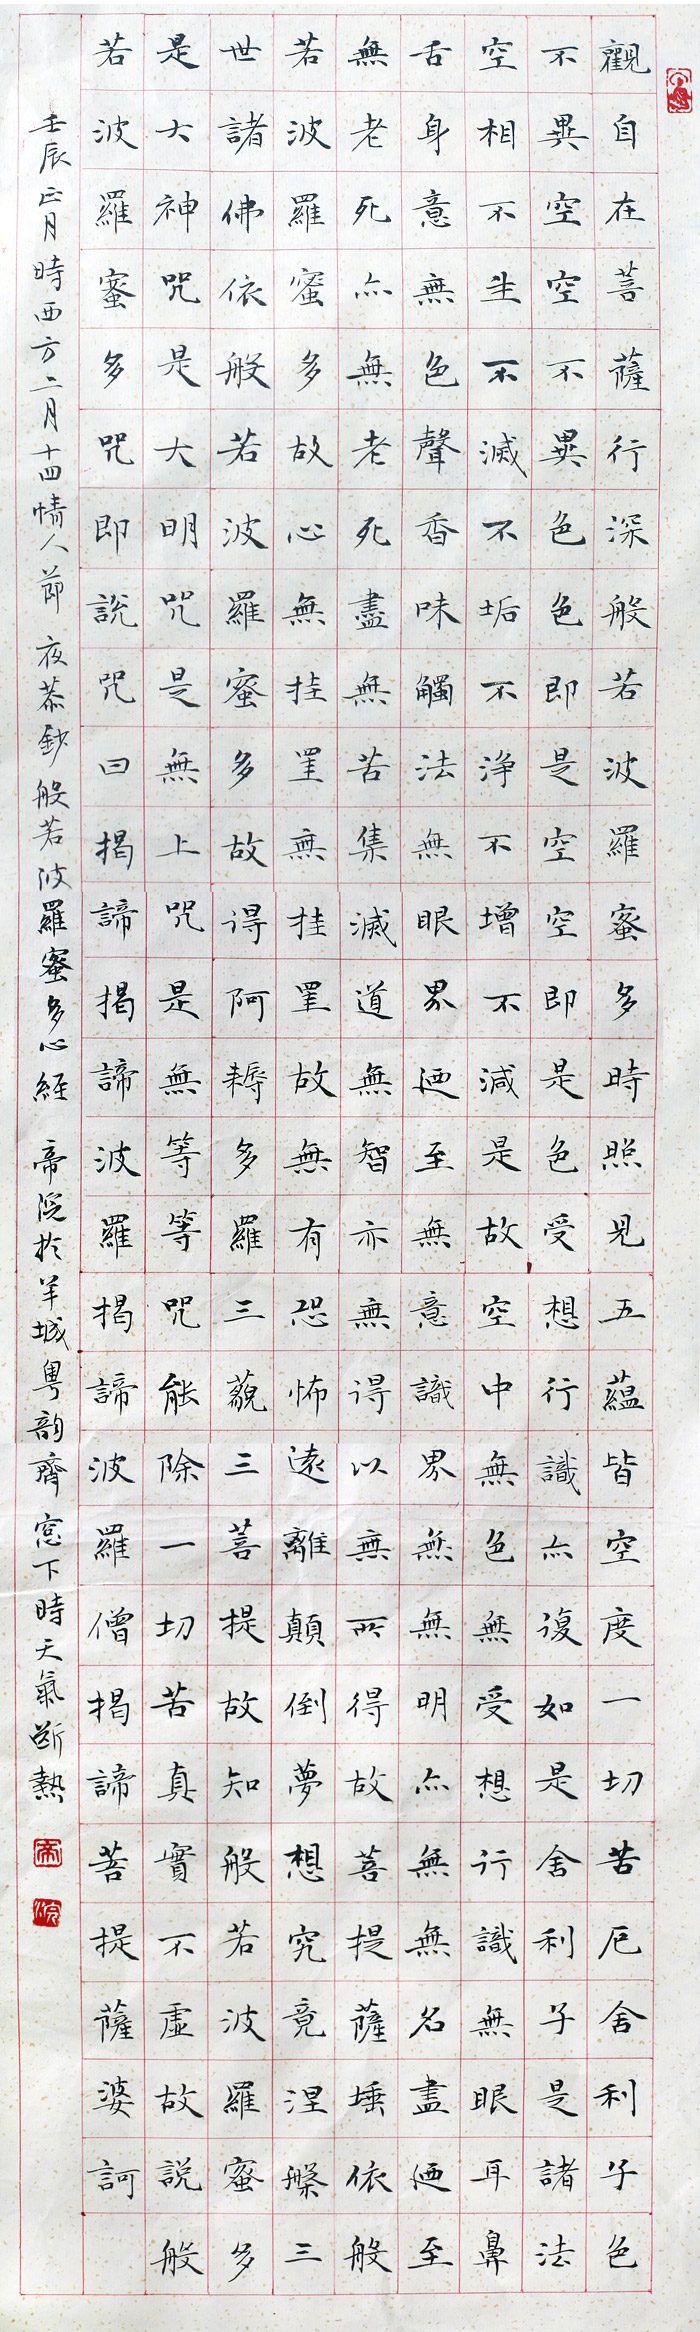 觀自在菩薩行深般若波羅蜜多時照見五蘊皆空度一切苦厄舍利子色
不異空空不異色色即是空空即是色受想行識亦復如是舍利子是諸法
空相不生不滅不垢不淨不增不減是故空中無色無受想行識無眼耳鼻
舌身意無色聲香味觸法無眼界迺至無意識界無無明亦無無名盡迺至
無老死亦無老死盡無苦集滅道無智亦無得以無所得故菩提薩埵依般
若波羅蜜多故心無挂罣無挂罣故無有恐怖遠離顛倒夢想究竟涅槃三
世諸佛依般若波羅蜜多故得阿耨多羅三藐三菩提故知般若波羅蜜多
是大神咒是大明咒是無上咒是無等等咒能除一切苦真實不虛故說般
若波羅蜜多咒即說咒曰揭諦揭諦波羅揭諦波羅僧揭諦菩提薩婆訶
壬辰正月時西方二月十四情人節 夜恭鈔般若波羅蜜多心經 帝浣於羊城粵韵齋窓下時天氣断熱
帝
浣